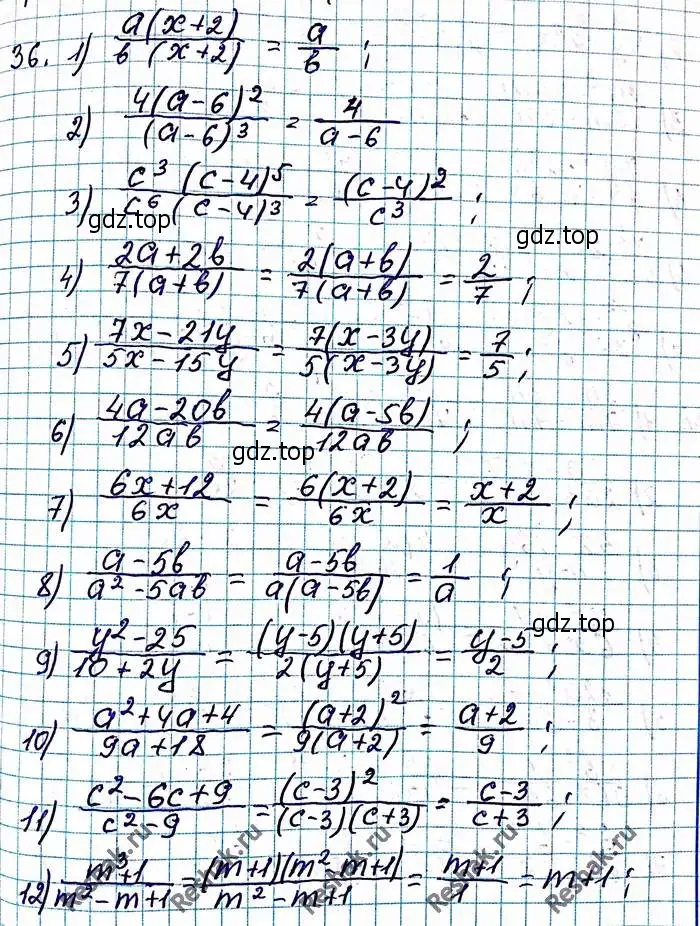 36. 1) a(x+2)/в(x+2) = a/в ;
2) 4(a-6)²/(a-6)³ = 4/(a-6)
3) c³(c-4)⁵/c⁶(c-4)³ = (c-4)²/c³ ;
gdz.top
gdz.top
4) 2a+2в/7(a+в) = 2(a+в)/7(a+в) = 2/7 ;
5) 7x-21y/5x-15y = 7(x-3y)/5(x-3y) = 7/5 ;
6) 4a-20в/12aв = 4(a-5в)/12aв ;
gdz.top
7) 6x+12/6x = 6(x+2)/6x = x+2/x ;
8) a-5в/a²-5aв = a-5в/a(a-5в) = 1/a ;
gdz.top
9) y²-25/10+2y = (y-5)(y+5)/2(y+5) = y-5/2 ;
10) a²+4a+4/9a+18 = (a+2)²/9(a+2) = a+2/9 ;
11) c²-6c+9/c²-9 = (c-3)²/(c-3)(c+3) = c-3/c+3 ;
12) m³+1/m²-m+1 = (m+1)(m²-m+1)/m²-m+1 = m+1/1 = m+1 ;
Reshak.ru
Reshak.ru
Reshak.ru
Reshak.ru